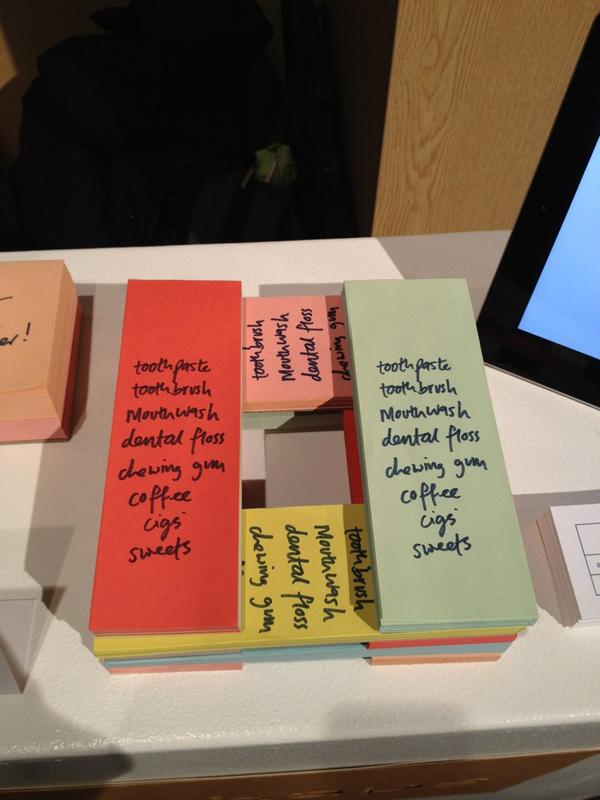 er!
toothpaste
toothbrush
Mouthwash
dental floss
chewing gum
coffee
cigs
sweets
toothbrush
Mouthwash
dental floss
chewing gum
toothpaste
toothbrush
Mouthwash
dental floss
chewing gum
coffee
cigs
sweets
toothbrush
Mouthwash
dental floss
chewing gum